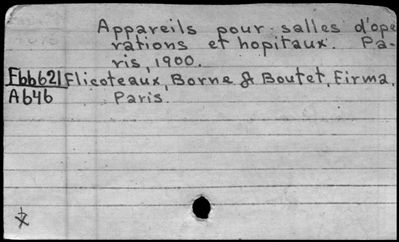 Appareils pour salles d'ope
rations et hopitaux. Pa-
ris, 1900.
Fbb621 Flicoteaux, Borne & Boutet, Firma,
A646 Paris.